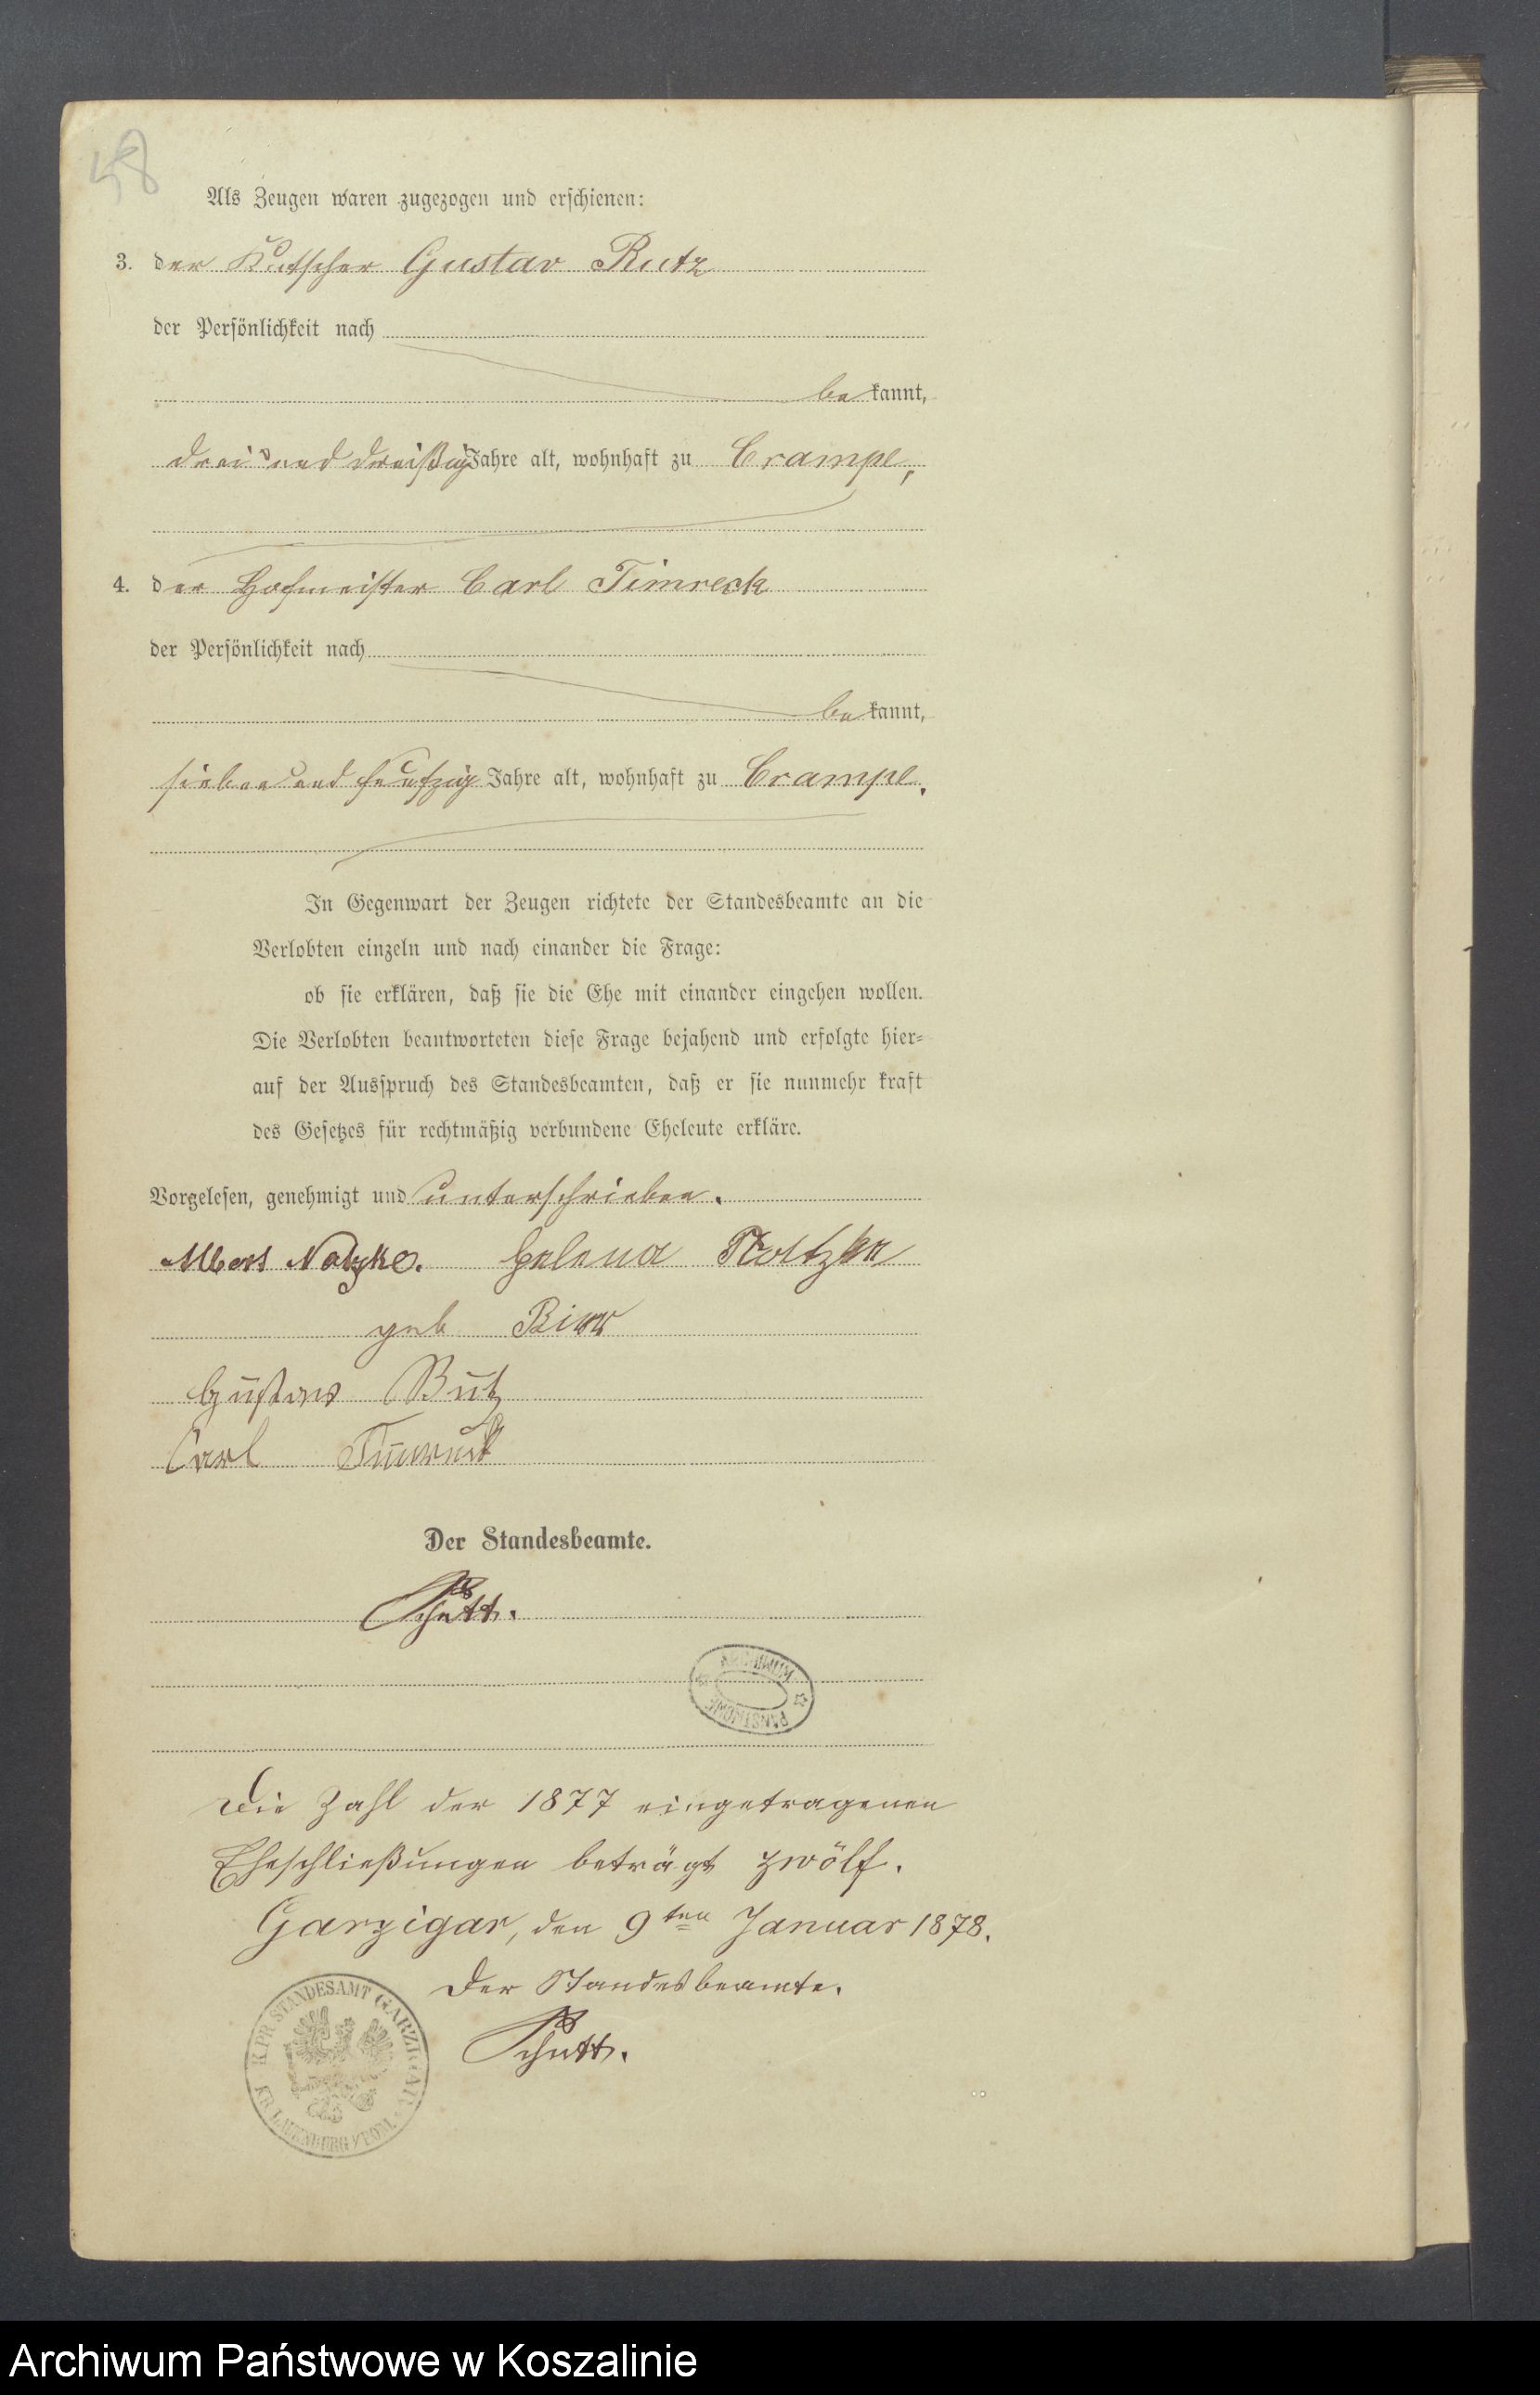 48
Als Zeugen waren zugezogen und erschienen:
3. der Kutscher Gustav Rutz
der Persönlichkeit nach
be kannt,
drei und dreißig Jahre alt, wohnhaft zu Crampe,
4. der Hofmeister Carl Timreck
der Persönlichkeit nach
be kannt,
sieben und fünfzig Jahre alt, wohnhaft zu Crampe.
In Gegenwart der Zeugen richtete der Standesbeamte an die
Verlobten einzeln und nach einander die Frage:
ob sie erklären, daß sie die Ehe mit einander eingehen wollen.
Die Verlobten beantworteten diese Frage bejahend und erfolgte hier-
auf der Ausspruch des Standesbeamten, daß er sie nunmehr kraft
des Gesetzes für rechtmäßig verbundene Eheleute erkläre.
Vorgelesen, genehmigt und unterschrieben.
Albert Natzke. Helena
geb
Gustav Rutz
Carl Timreck
Der Standesbeamte.
Schütt.
ARCHIWUM PAŃSTWOWE
Die Zahl der 1877 eingetragenen
Eheschließungen beträgt zwölf.
Garzigar, den 9ten Januar 1878.
Der Standesbeamte.
Schütt.
K. PR. STANDESAMT GARZIGAR
KR. LAUENBURG I/POM.
Archiwum Państwowe w Koszalinie